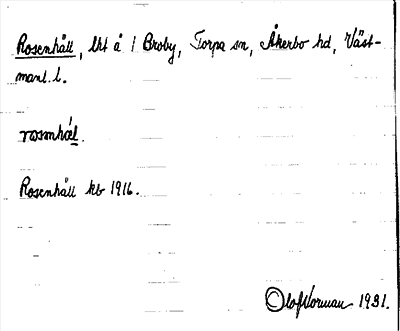 Rosenhäll, lht å 1 Broby, Torpa sn, Åkerbo hd, Väst-
manl. l.
rosənhäl.
Rosenhäll kb 1916.
Olof Norman 1931.